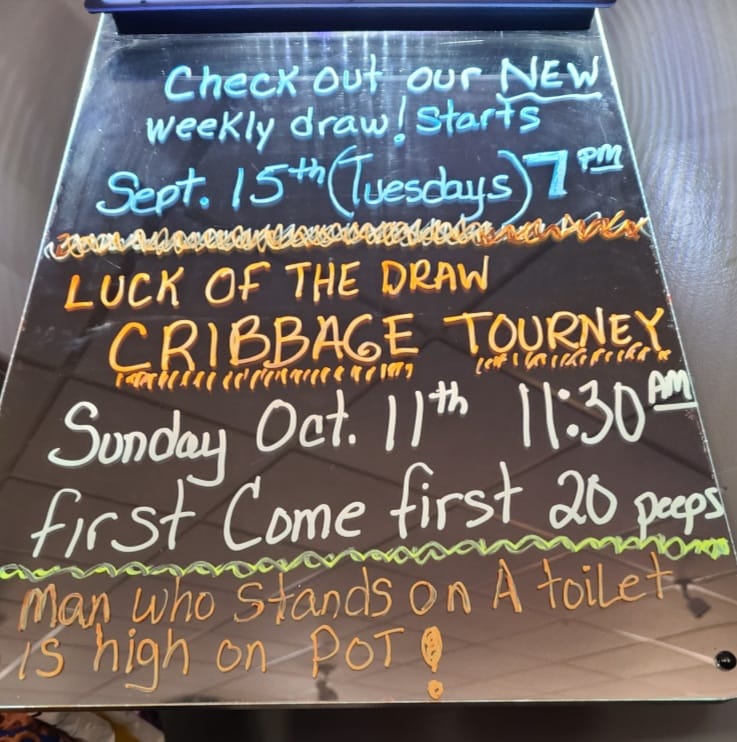 Check out our NEW
weekly draw! Starts
Sept. 15th (Tuesdays) 7 PM
LUCK OF THE DRAW
CRIBBAGE TOURNEY
Sunday Oct. 11th 11:30 AM
first Come first 20 peeps
Man who stands on A toilet
is high on POT!